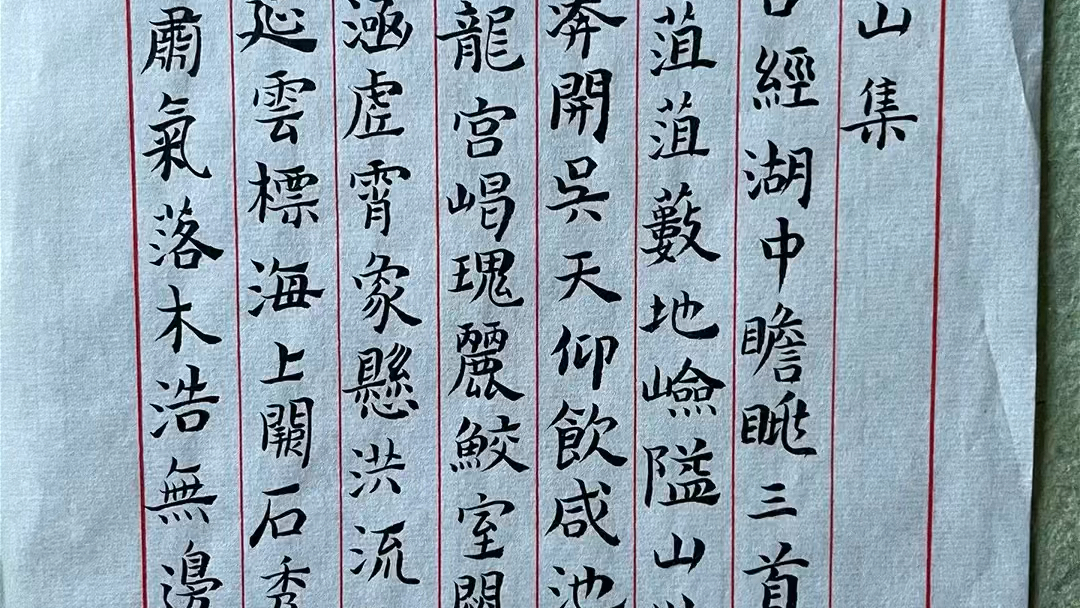 山集
經湖中瞻眺三首
菹菹藪地嶮隘山
奔開吳天仰飲咸池
龍宮嵑瑰麗鮫室
涵虛霄象懸洪流
延雲標海上闕石秀
肅氣落木浩無邊